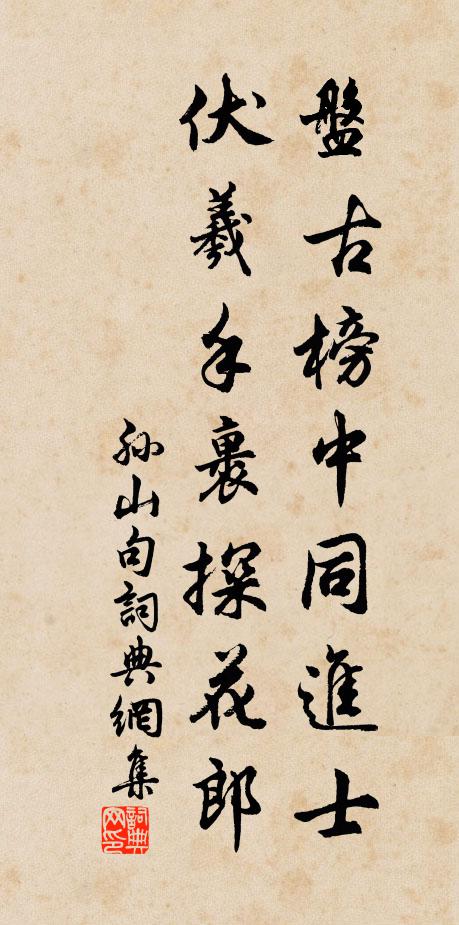 盤古榜中同進士
伏羲手裏探花郎
孫山句詞典網集
詞典网印